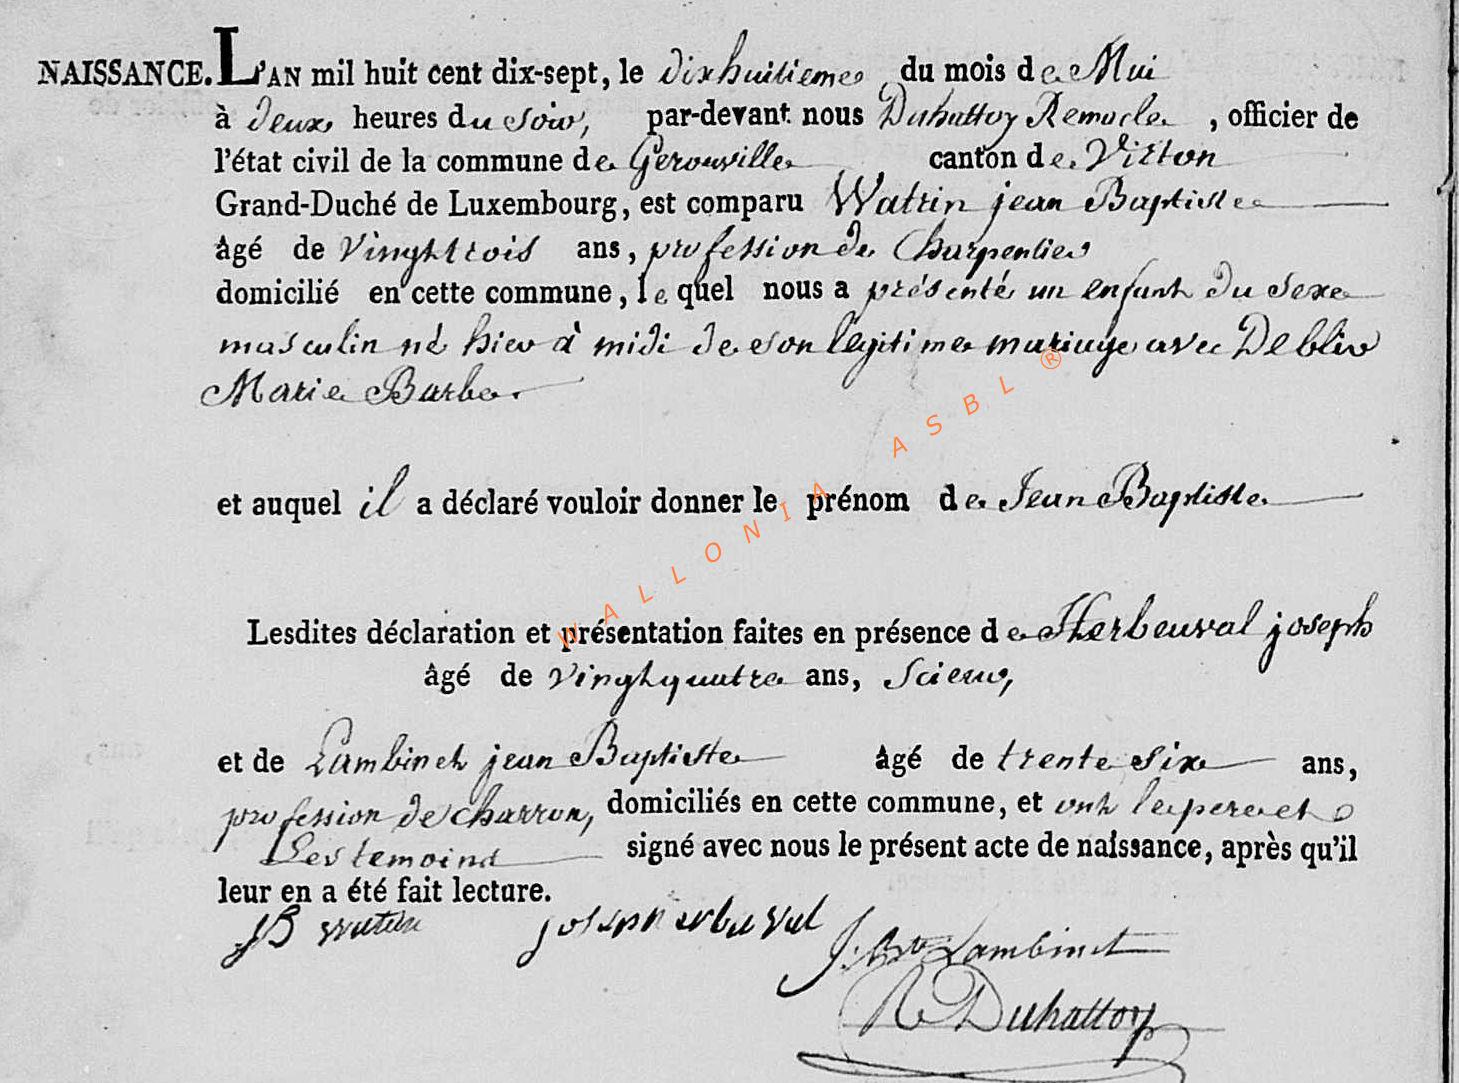 NAISSANCE. L'AN mil huit cent dix-sept, le dixhuitieme du mois de Mai
à deux heures du soir, par-devant nous Duhattoy Remacle, officier de
l'état civil de la commune de Gerouville canton de Virton
Grand-Duché de Luxembourg, est comparu Watrin jean Baptiste
âgé de Vinghtrois ans, profession de Charpentier
domicilié en cette commune, le quel nous a présenté un enfant du sexe
masculin né hier à midi de son légitime mariage avec Deblir
Marie Barbe.
et auquel il a déclaré vouloir donner le prénom de Jean Baptiste
Lesdites déclaration et présentation faites en présence de Herbeuval joseph
âgé de vinghquatre ans, Scieur,
et de Lambinet jean Baptiste âgé de trente six ans,
profession de charron, domiciliés en cette commune, et ont le pere et
Les temoins signé avec nous le présent acte de naissance, après qu'il
leur en a été fait lecture.
JB watrin joseph erbuval J. Bte Lambinet
R Duhattoy
WALLONIA ASBL ®